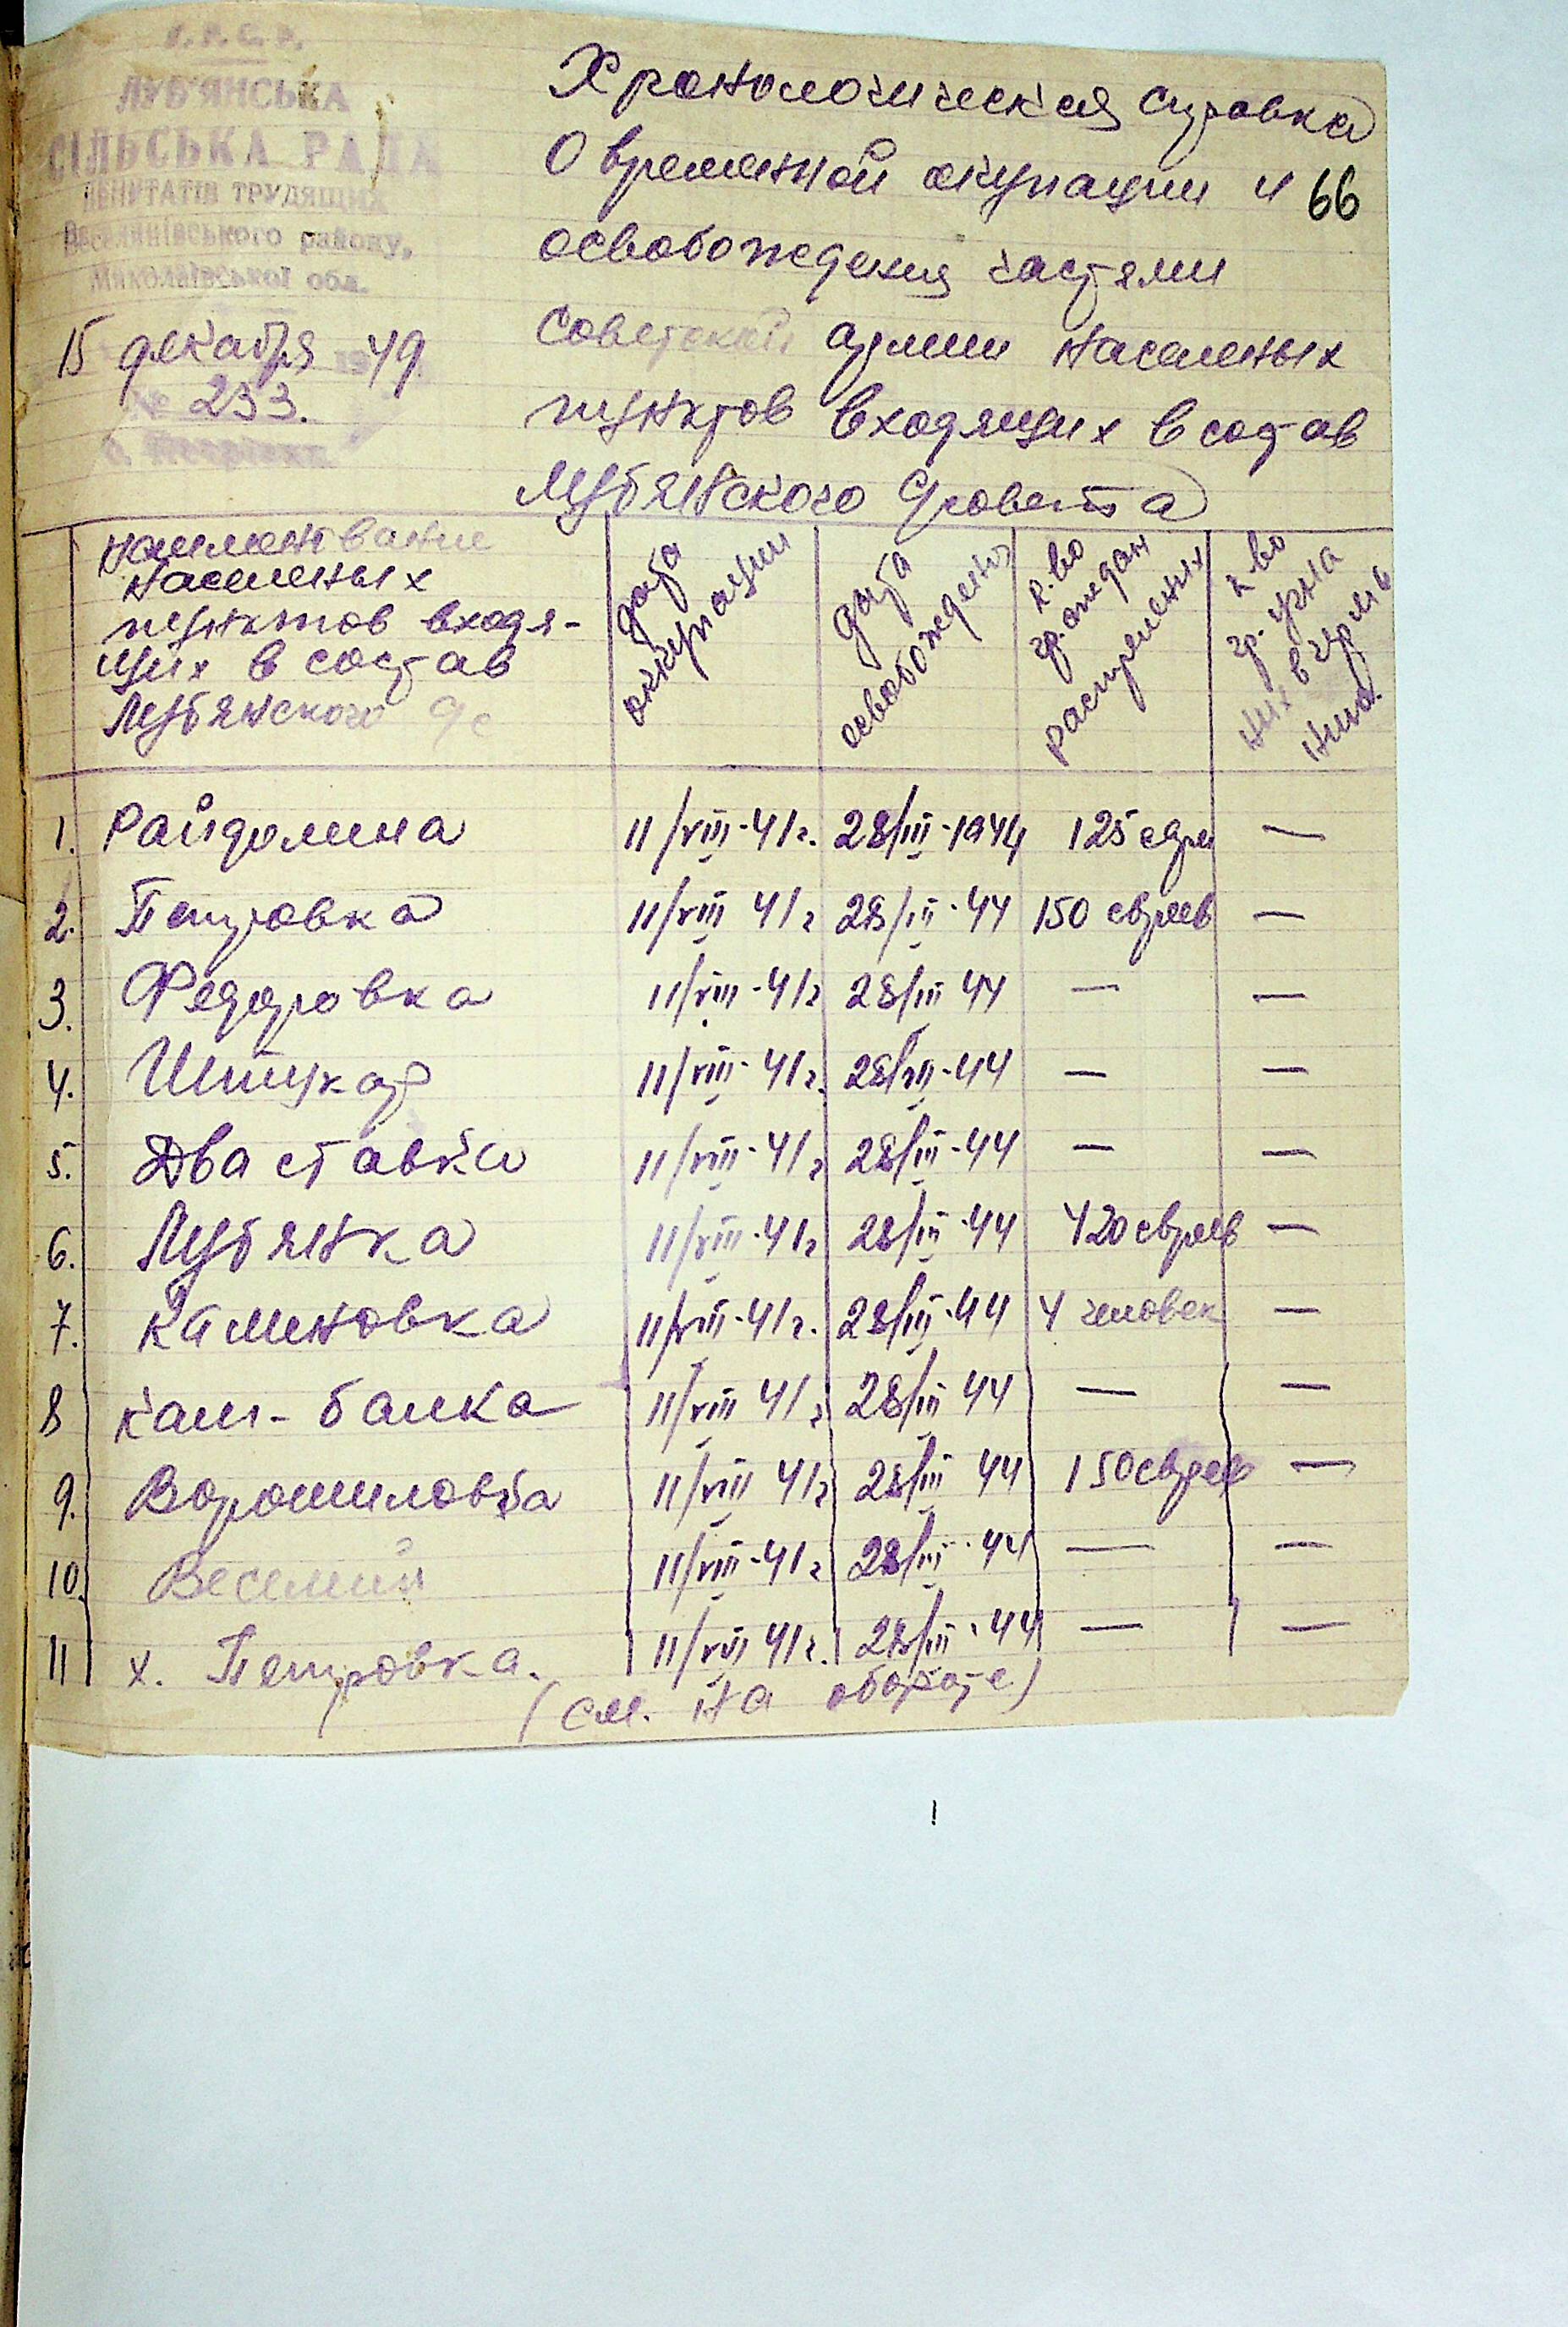 У. Р. С. Р.
ЛУБ'ЯНСЬКА
СІЛЬСЬКА РАДА
ДЕПУТАТІВ ТРУДЯЩИХ
Веселинівського району,
Миколаївської обл.
15 декабря 1949
№ 233.
Хронологическая справка
О временной окупации и 66
освобождения частями
Советской армии населеных
пунктов входящих в состав
Лубянского с/совета
наименование населеных пунктов входя-щих в состав Лубянского с/с | дата оккупации | дата освобождения | к-во граждан расстреленых | к-во гр. угна них в
1. Райдолина 11/VIII-41г. 28/III-1944 125 —
2. Петровка 11/VIII 41г 28/III-44 150 евреев —
3. Федоровка 11/VIII-41г 28/III 44 — —
4. Штукар 11/VIII-41г. 28/III-44 — —
5. Два ставка 11/VIII-41г 28/III-44 — —
6. Лубянка 11/VIII-41г 28/III-44 420 евреев —
7. Калиновка 11/VIII-41г. 28/III-44 4 человек —
8 Кат-балка 11/VIII 41г 28/III 44 — —
9. Ворошиловка 11/VIII 41г 28/III 44 150 евреев —
10. Веселий 11/VIII-41г. 28/III-44 — —
11 х. Петровка. 11/VIII 41г. 28/III-44 — —
(см. на обороте)